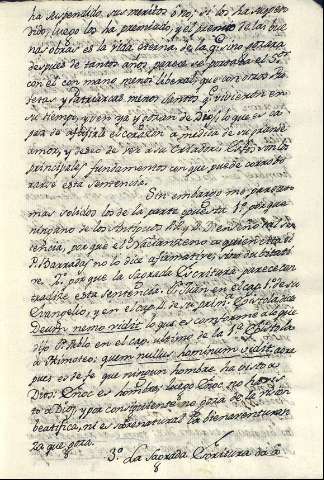 ha suspendido sus meritos ó no; si los ha suspen-
dido, luego los ha premiado, y el premio de las bue-
nas obras es la vida eterna, de la q.e si no gozara
despues de tantos años, parece se portaba el S.r
con el con mano menos liberal, que con otros Pro-
fetas y Patriarcas menos santos q.e vivieron en
su tiempo, y ven ya y gozan de Dios, lo que es ca-
paz de el corazon a medida de su grande
amor, y deseo de ver a su Criador. Estos son los
principales fundamentos con que puede corrobo-
rarse esta sentencia.
Sin embargo me parecen
mas solidos los de la parte opuesta 1.o porque
ninguno de los Antiguos P.P. y D.D. enseño tal sen-
tencia, por que el Nacianzeno a quien cita el
P. Barradas no lo dice afirmative, sino dubitati-
ve. 2.o porque la Sagrada Escritura parece con-
tradize esta sentencia. S. Juan en el cap. 1.o de su
Evangelio, y en el cap. 4. de su prim.a Epistola dice
Deum nemo vidit lo que es conforme a lo que
dijo S. Pablo en el cap. ultimo de la 1.a Epistola
a Timoteo: quem nullus hominum vidit,
pues es de fe que ningun hombre ha visto a
Dios: Enoc es hombre, luego Enoc no ha vis-
to a Dios, y por consiguiente no goza de la vision
beatifica, ni es sobrenatural la bienaventuran-
za que goza.
3.o La Sagrada Escritura da a